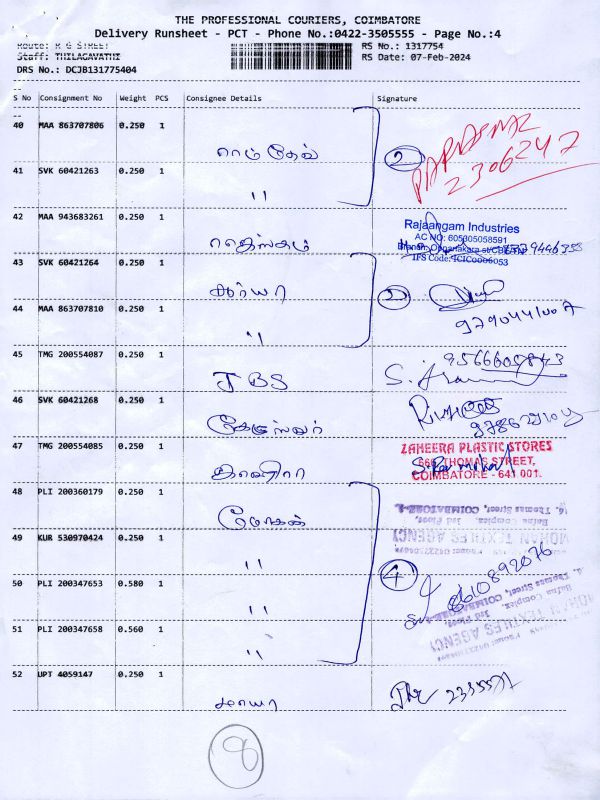 THE PROFESSIONAL COURIERS, COIMBATORE
Delivery Runsheet - PCT - Phone No.:0422-3505555 - Page No.:4
Route: R G STREET
RS No.: 1317754
Staff: THILAGAVATHI
RS Date: 07-Feb-2024
DRS No.: DCJB131775404
S No Consignment No Weight PCS Consignee Details Signature
40 MAA 863707806 0.250 1
ராம்தேவ் 2
2306247
41 SVK 60421263 0.250 1
"
42 MAA 943683261 0.250 1
Rajaangam Industries
AC NO: 605305058591
IFS Code: ICIC0006053
43 SVK 60421264 0.250 1
சூர்யா
44 MAA 863707810 0.250 1
"
45 TMG 200554087 0.250 1
JBS
46 SVK 60421268 0.250 1
47 TMG 200554085 0.250 1
ZAHEERA PLASTIC STORES
THOMAS STREET,
COIMBATORE - 641 001.
48 PLI 200360179 0.250 1
மோகன்
16, Thomas Street, COIMBATORE-1.
Bafna Complex, 3rd Floor,
MOHAN TEXTILES AGENCY
49 KUR 530970424 0.250 1
"
4
8610892076
50 PLI 200347653 0.580 1
"
16, Thomas Street, COIMBATORE-1.
Bafna Complex, 3rd Floor,
MOHAN TEXTILES AGENCY
51 PLI 200347658 0.560 1
"
52 UPT 4059147 0.250 1
8